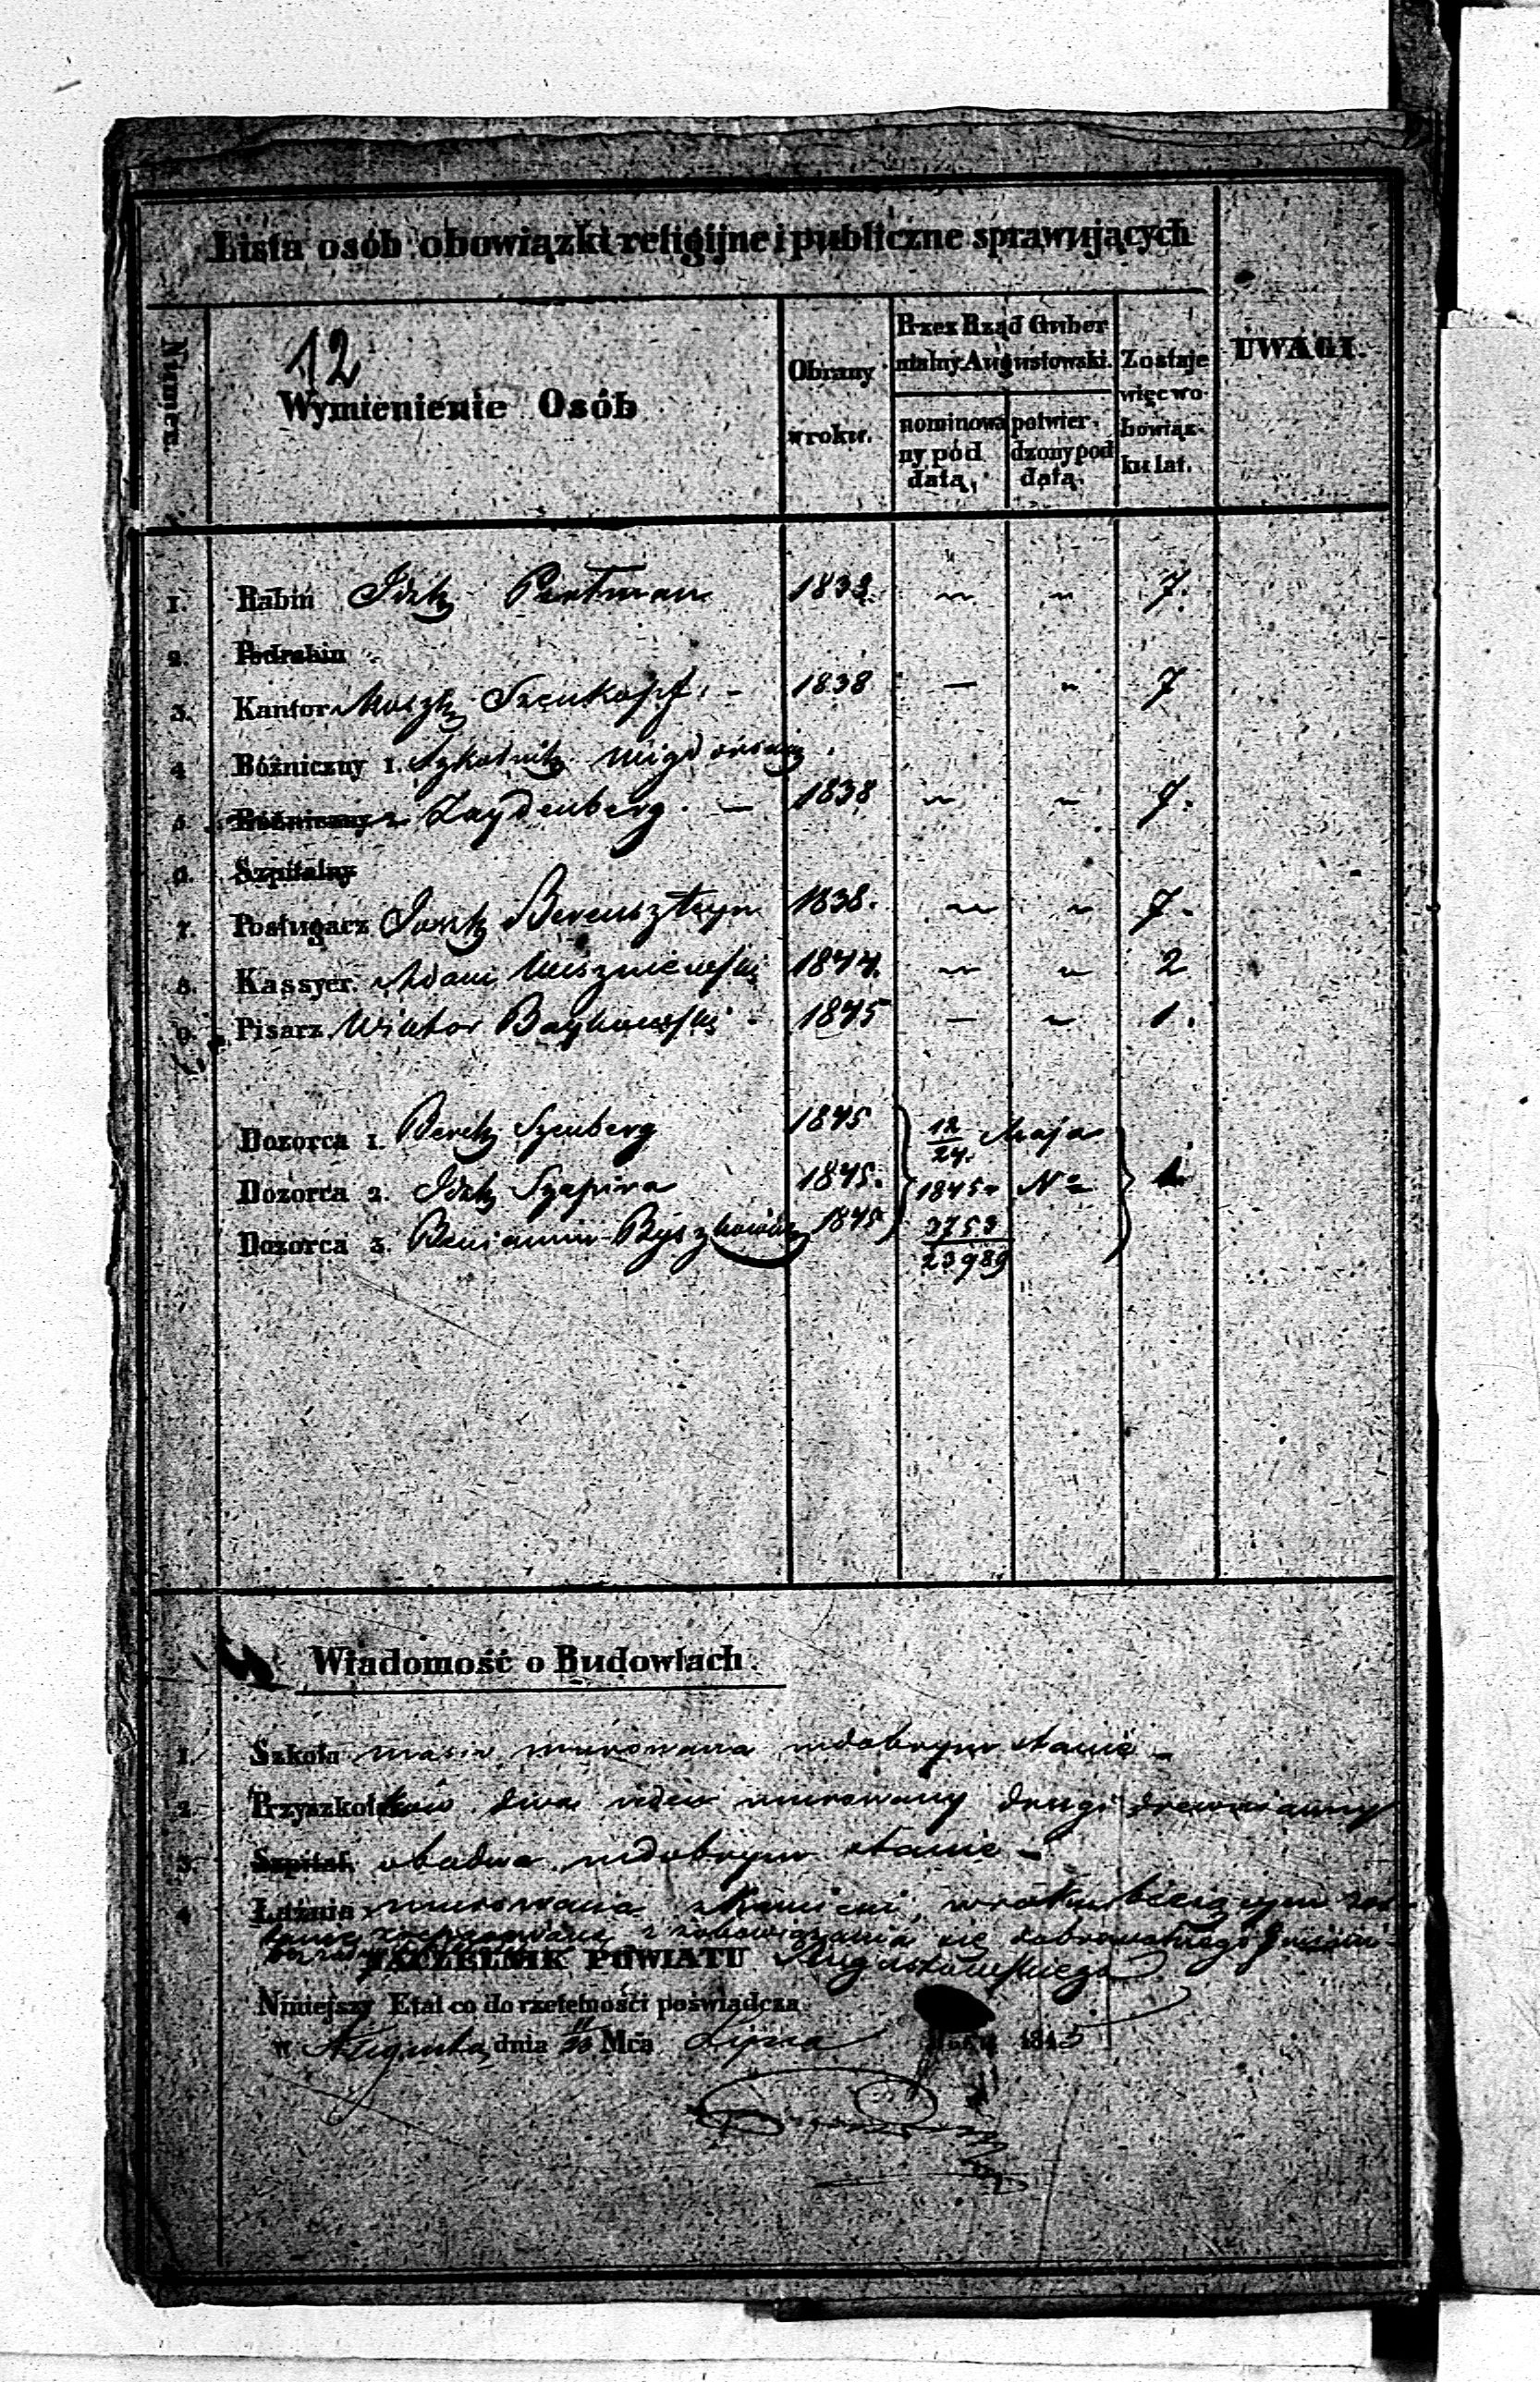 Lista osób obowiązki religijne i publiczne sprawujących
Numer.
12
Wymienienie Osób
Obrany w roku.
Przez Rząd Guber nialny Augustowski.
nominowa ny pód datą,
potwier dzony pod datą.
Zostaje więc w o bowiąz ku lat.
UWAGI.
1. Rabin Idzk Portman 1838. 7.
2. Podrabin
3. Kantor Moszk Szenkopf. - 1838 — 7
4. Bóżniczny 1. Szkolnik
5. Bóżniczny 2. Zaydenberg. — 1838 7.
6. Szpitalny
7. Posługacz Josk Berenszteyn 1838. 7.
8. Kassyer. Adam Wiszniewski 1844. 2
9. Pisarz Wiktor Baykowski - 1845 — 1.
Dozorca 1. Berek Szenberg 1845 12/24. Maja
Dozorca 2. Idzk Szapira 1845. 1845 r. No 1.
Dozorca 3. Beniamin Byszkowicz 1845 3753/23989
Wiadomość o Budowlach.
1. Szkoła murowana w dobrym stanie -
2. Przyszkołków dwa jeden murowany drugi drewnianny
3. Szpital. obadwa w dobrym stanie -
4. Łaźnia murowana z kamieni, w roku bieżącym
z zobowiązania się dobrowolnego
NACZELNIK POWIATU Augustowskiego
Niniejszy Etat co do rzetelności poświadcza
w dnia Mca Lipca Roku 1845